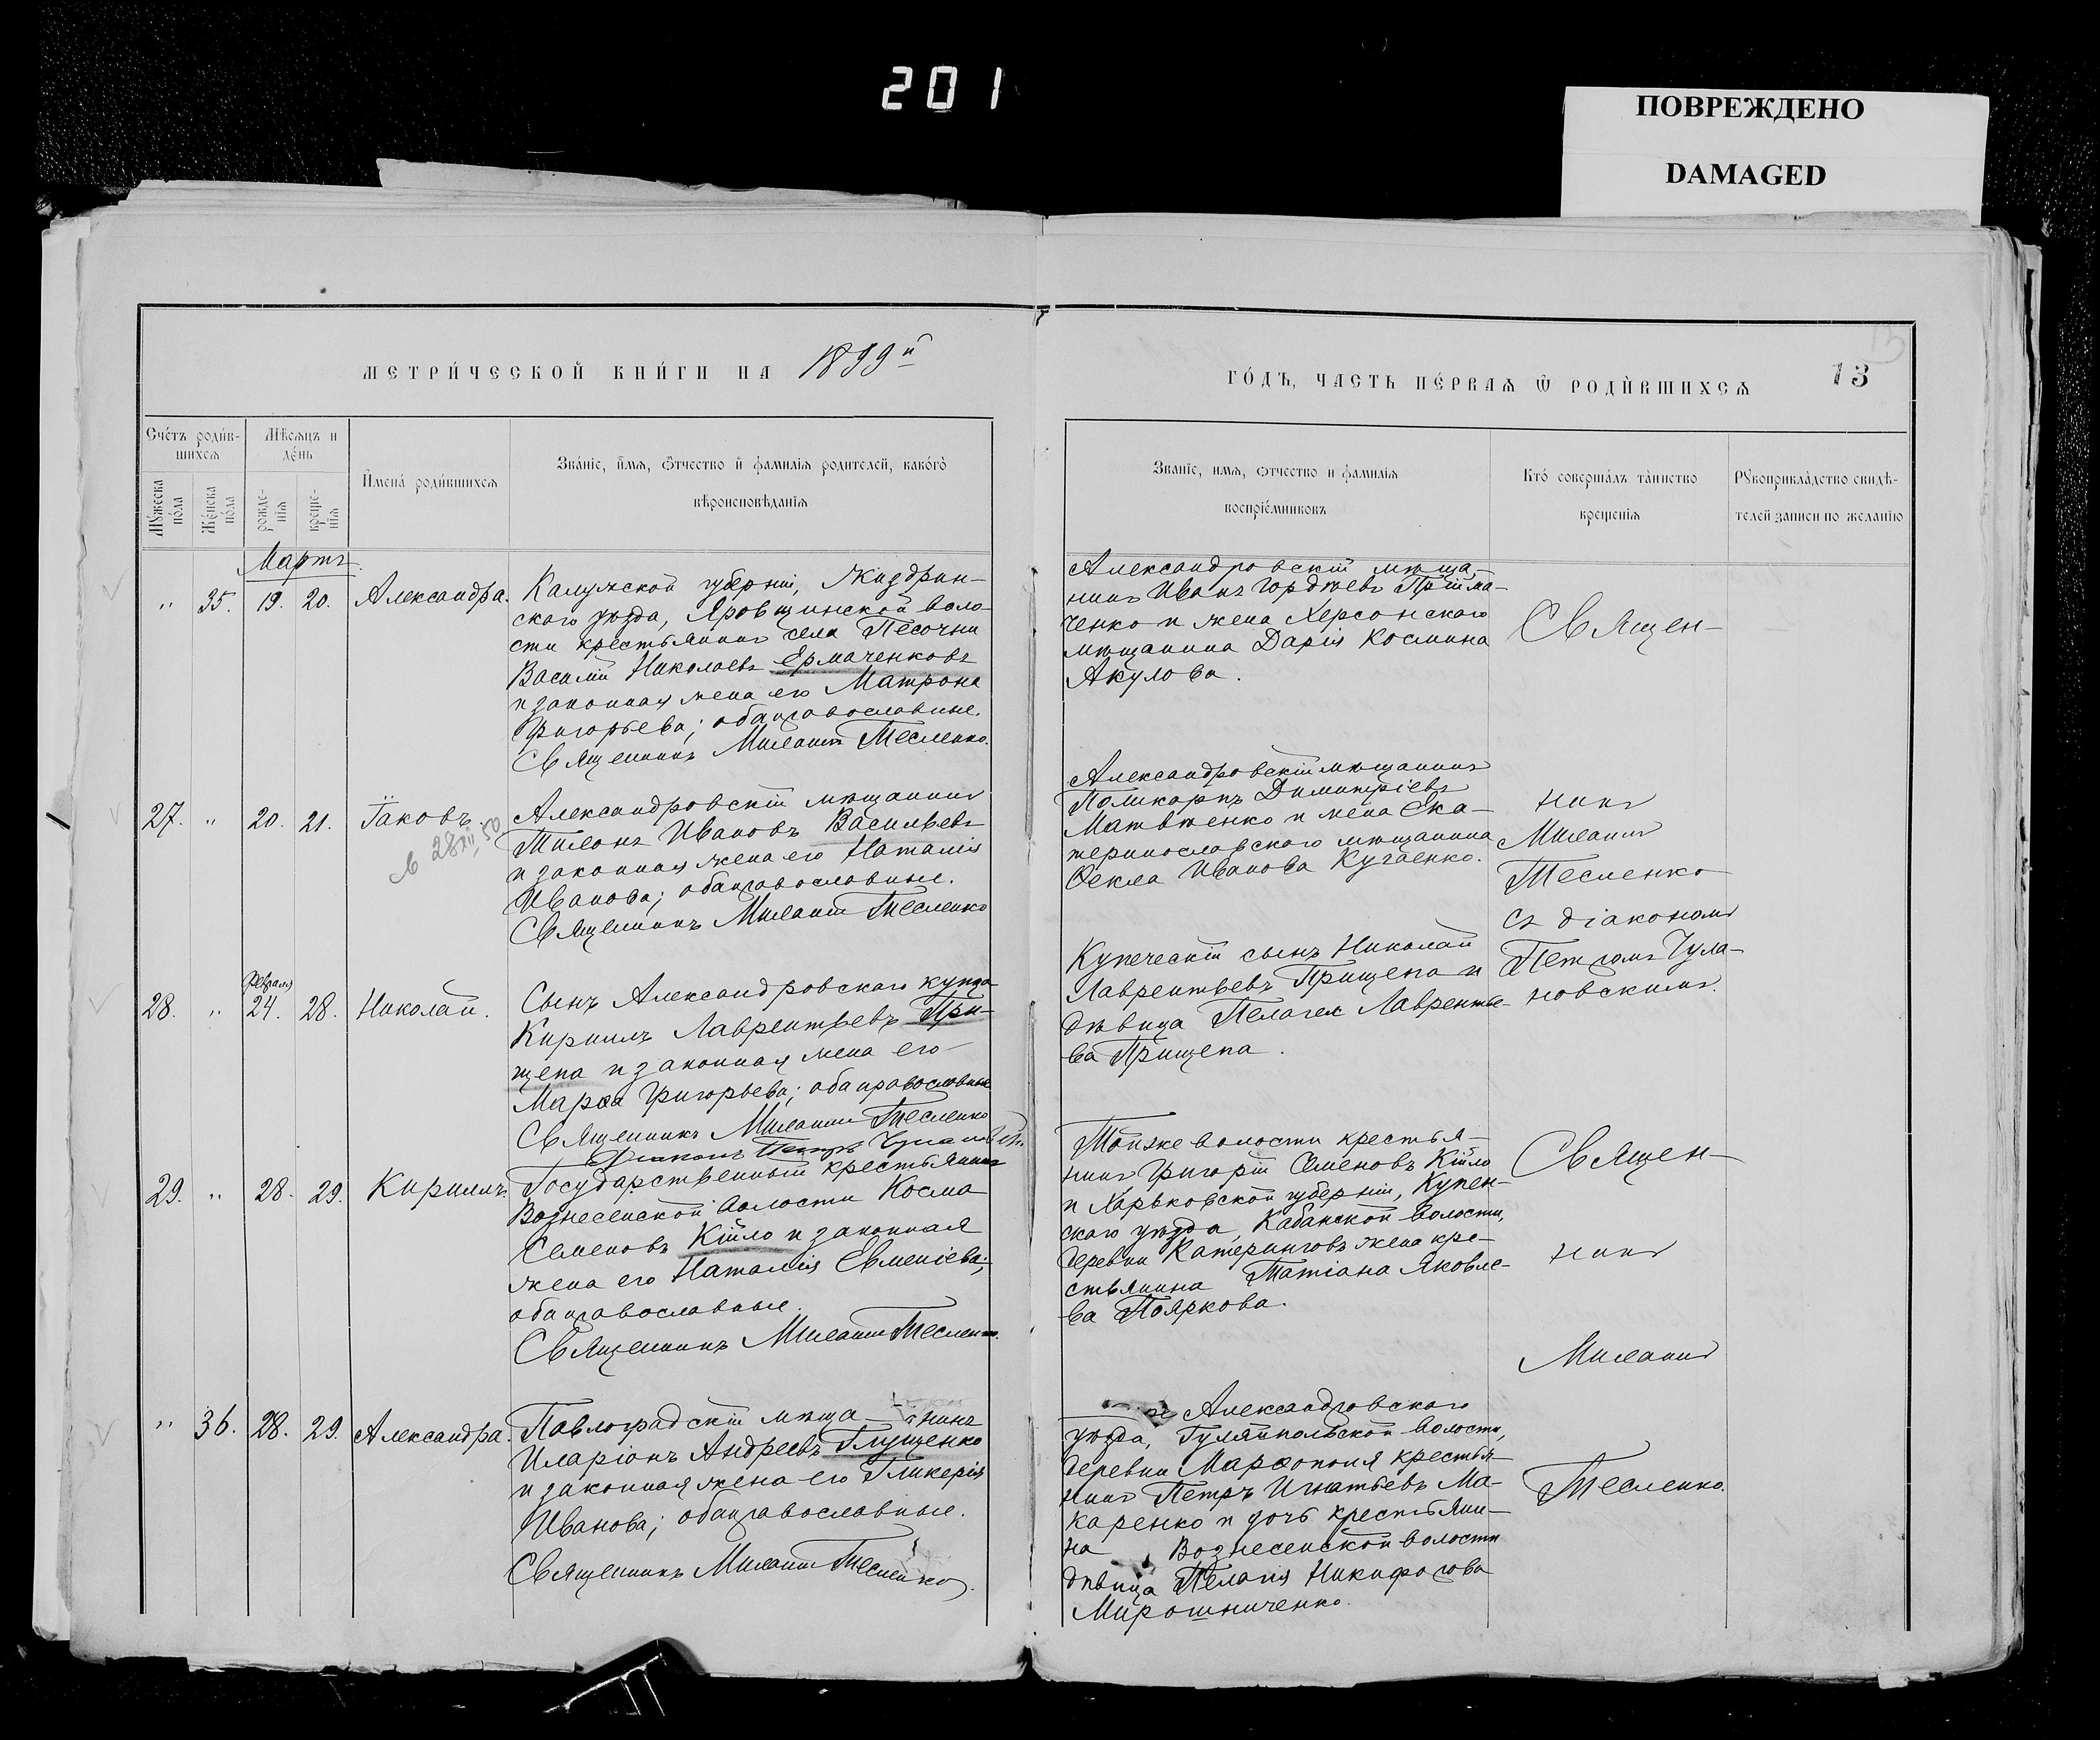 201
ПОВРЕЖДЕНО
DAMAGED
МЕТРИ́ЧЕСКОЙ КНИ́ГИ НА 1899й
ГО́ДЪ, ЧАСТЬ ПЕ́РВАѦ Ѿ РОДИ́ВШИХСѦ
13
Сче́тъ роди́в-
шихсѧ
Мѣ́сѧцъ и
де́нь
Мꙋ́жеска
по́ла
Же́нска
по́ла
рожде-
нїѧ
креще-
нїѧ
Имена́ роди́вшихсѧ
Зва́нїе, и́мѧ, ѻ́тчество и фамилїѧ родителей, како́гѡ
вѣроисповѣ́данїѧ
Званїе, имѧ, ѻтчество и фамилїѧ
воспрїе́мниковъ
Кто́ соверша́лъ та́инство
креще́нїѧ
Рꙋкоприкла́дство свидѣ́-
телей записи по жела́нїю
Мартъ.
" 35. 19. 20. Александра.
Калужской губерніи, Жиздрин-
скаго уѣзда, Яровщинской воло-
сти крестьянинъ села Песочни
Василій Николаевъ Ермаченковъ
и законная жена его Матрона
Григорьева; оба православные.
Священникъ Милантій Тесленко.
Александровскій мѣща-
нинъ Иванъ Гордѣевъ Пріима-
ченко и жена Херсонскаго
мѣщанина Дарія Космина
Акулова.
Священ-
27. " 20. 21. Іаковъ.
28 XII 50
Александровскій мѣщанинъ
Тихонъ Ивановъ Васильевъ
и законная жена его Наталія
Иванова; оба православные.
Священникъ Милантій Тесленко
Александровскій мѣщанинъ
Поликарпъ Димитріевъ
Матвѣенко и жена Ека-
теринославскаго мѣщанина
Ѳекла Иванова Кугаенко.
никъ
Милантій
Тесленко
съ діакономъ
Петромъ Чула-
новскимъ.
Февраля
28. " 24. 28. Николай.
Сынъ Александровскаго купца
Кириллъ Лаврентьевъ При-
щепа и законная жена его
Марѳа Григорьева; оба православные
Священникъ Милантій Тесленко
Діаконъ Петръ
Купеческій сынъ Николай
Лаврентьевъ Прищепа и
дѣвица Пелагея Лавренть-
ва Прищепа.
29. " 28. 29. Кириллъ.
Государственный крестьянинъ
Вознесенской волости Косма
Семеновъ Кійло и законная
жена его Наталія Евменіева;
оба православные.
Священникъ Милантій Тесленко.
Той же волости крестья-
нинъ Григорій Семеновъ Кійло
и Харьковской губерніи, Купен-
скаго уѣзда, Кабанской волости,
деревни Катериновъ жена кре-
стьянина Татіана Яковле-
ва Пояркова.
Священ-
никъ
Милантій
Тесленко.
" 36. 28. 29. Александра.
Павлоградскій мѣща- нинъ
Иларіонъ Андреевъ Глущенко
и законная жена его Гликерія
Иванова; оба православные.
Священникъ Милантій Тесленко.
Александровскаго
уѣзда, Гуляйпольской волости,
деревни Марѳополя крестья-
нинъ Петръ Игнатьевъ Ма-
каренко и дочь крестьяни-
на Вознесенской волости
дѣвица Пелагія Никифорова
Мирошниченко.